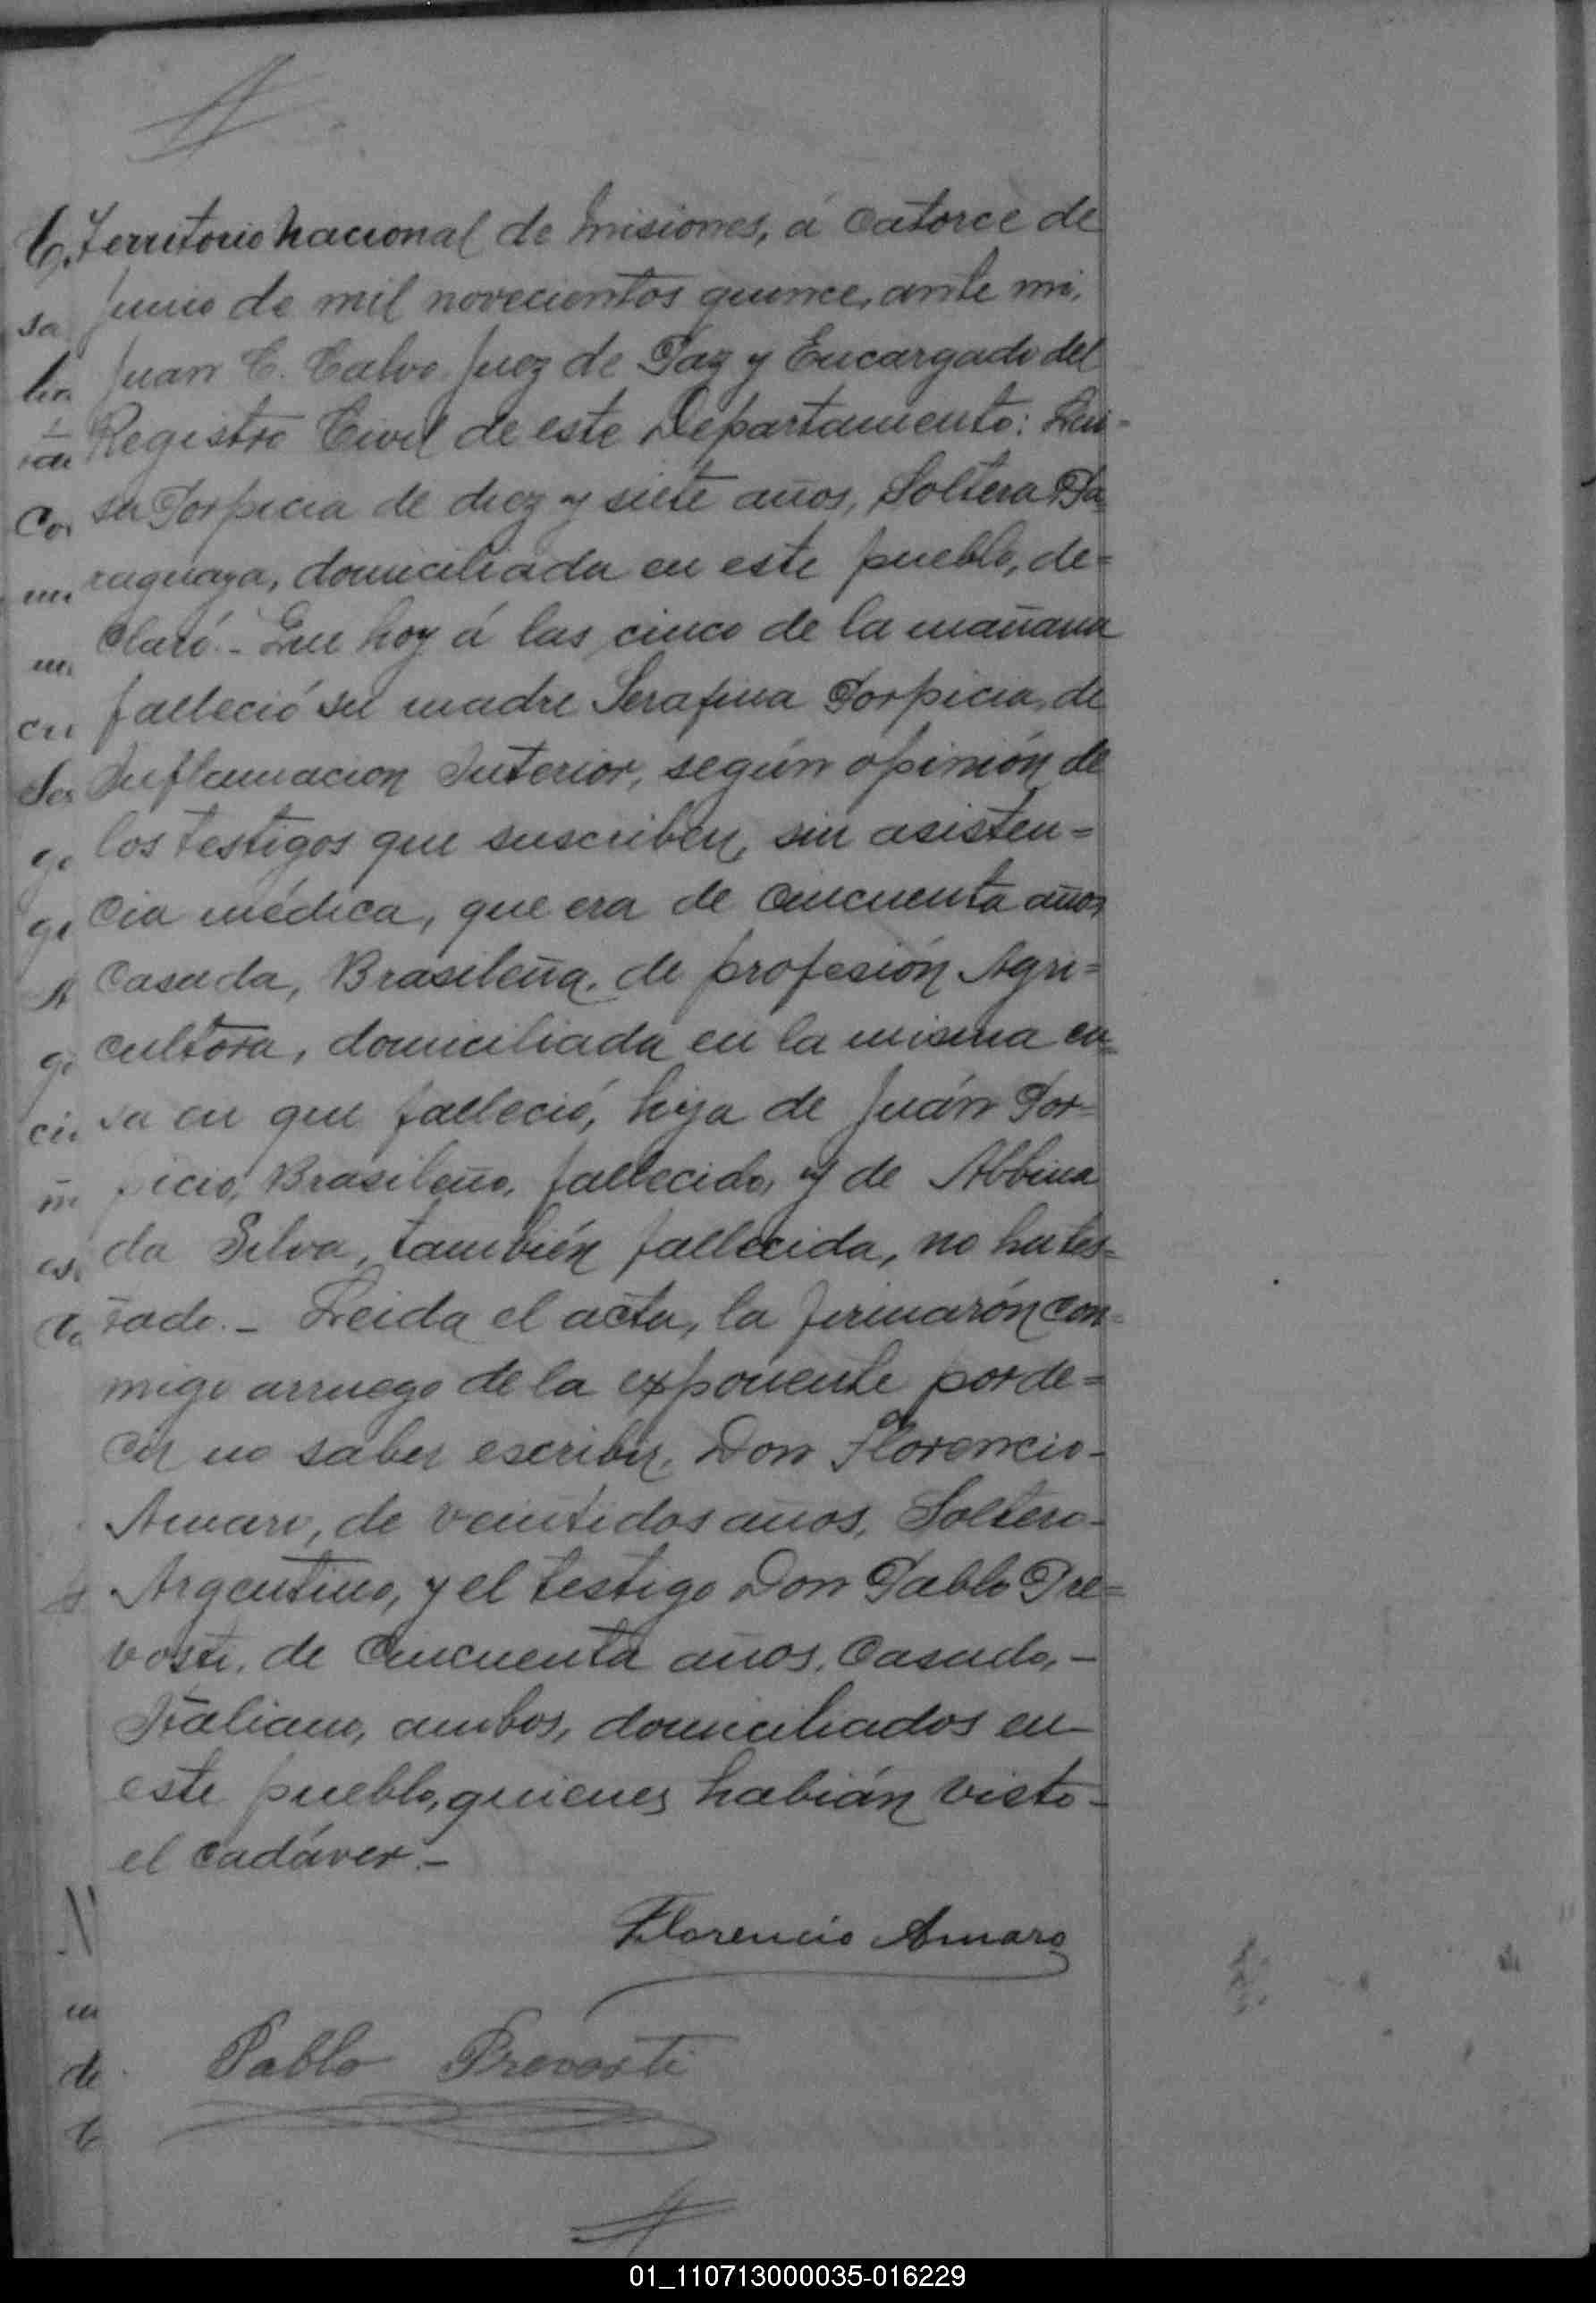 Territorio Nacional de Misiones, á Catorce de
Junio de mil novecientos quince, ante mi,
Juan C. Calvo Juez de Paz y Encargado del
Registro Civil de este Departamento: Lui-
sa Porpicia de diez y siete años, Soltera Pa-
raguaya, domiciliada en este pueblo, de=
claró.- Que hoy á las cinco de la mañana
falleció su madre Serafina Porpicia, de
Inflamacion Interior, según opinión de
los testigos que suscriben, sin asisten=
cia médica, que era de Cincuenta años
Casada, Brasileña, de profesión Agri=
cultora, domiciliada en la misma ca=
sa en que falleció, hija de Juán Por=
picio, Brasileño, fallecido, y de Albina
da Silva, también fallecida, no ha tes=
tado.- Leida el acta, la firmarón con=
migo arruego de la exponente por de=
cir no saber escribir, Don Florencio-
Amaro, de veintidos años, Soltero-
Argentino, y el testigo Don Pablo Pre=
vosti, de Cincuenta años, Casado,-
Italiano, ambos, domiciliados en-
este pueblo, quienes habián visto-
el cadáver.-
Florencio Amaro
Pablo Prevosti
01_110713000035-016229